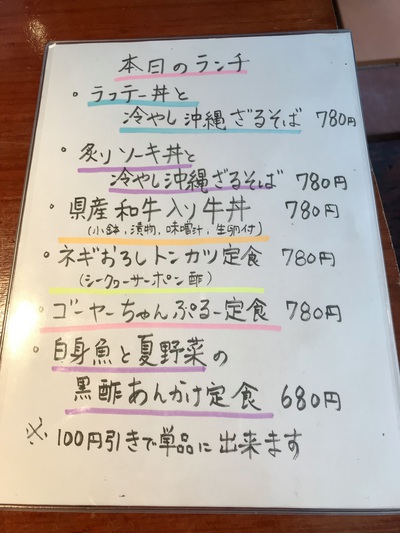 本日のランチ
・ラフテー丼と
冷やし沖縄ざるそば 780円
・炙りソーキ丼と
冷やし沖縄ざるそば 780円
・県産和牛入り牛丼 780円
(小鉢、漬物、味噌汁、生卵付)
・ネギおろしトンカツ定食 780円
(シークヮーサーポン酢)
・ゴーヤーちゃんぷるー定食 780円
・白身魚と夏野菜の
黒酢あんかけ定食 680円
※100円引きで単品に出来ます